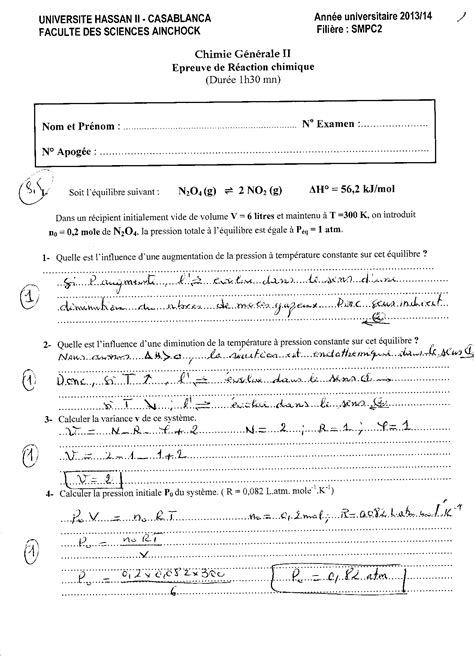 UNIVERSITE HASSAN II - CASABLANCA
FACULTE DES SCIENCES AINCHOCK
Année universitaire 2013/14
Filière : SMPC2
Chimie Générale II
Epreuve de Réaction chimique
(Durée 1h30 mn)
Nom et Prénom : N° Examen :
N° Apogée :
Soit l'équilibre suivant : N₂O₄ (g) ⇌ 2 NO₂ (g) ΔH° = 56,2 kJ/mol
Dans un récipient initialement vide de volume V = 6 litres et maintenu à T =300 K, on introduit
n₀ = 0,2 mole de N₂O₄, la pression totale à l'équilibre est égale à Peq = 1 atm.
1- Quelle est l'influence d'une augmentation de la pression à température constante sur cet équilibre ?
Si P augmente, l' ⇌ évolue dans le sens d'une
1
diminution du nbres de moles gazeux. Donc sens indirect
2- Quelle est l'influence d'une diminution de la température à pression constante sur cet équilibre ?
Nous avons ΔH>0, la réaction est endothermique dans le sens
1
Donc, si T ↑, l' ⇌ évolue dans le sens
si T ↓, l' ⇌ évolue dans le sens
3- Calculer la variance v de ce système.
V = N - R - φ + 2 N = 2 ; R = 1 ; φ = 1
1
V = 2 - 1 - 1 + 2
V = 2
4- Calculer la pression initiale P₀ du système. ( R = 0,082 L.atm. mole⁻¹.K⁻¹)
P₀ V = n₀ RT n₀ = 0,2 mol ; R = 0,082 L.atm
1
P₀ = n₀ RT / V
P₀ = 0,2 x 0,082 x 300 / 6 P₀ = 0,82 atm